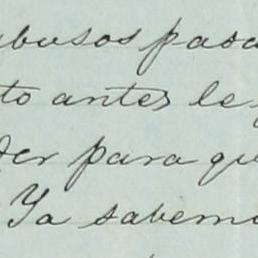 abusos pasa
to antes le
der para qu
Ya sabem